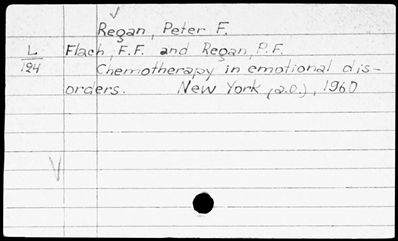 Regan, Peter F.
L Flach, F.F. and Regan, P.F.
124 Chemotherapy in emotional dis-
orders. New York (a.o.), 1960